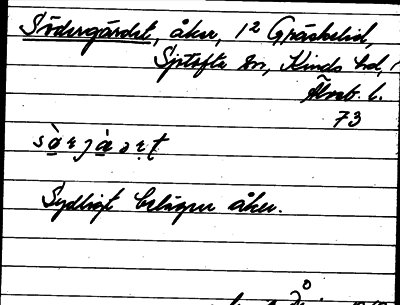 Södergärdet, åker, 12 Gräshelid,
Sjötofta sn, Kinds hd,
Älvsb. l.
73
Sydligt belägen åker.